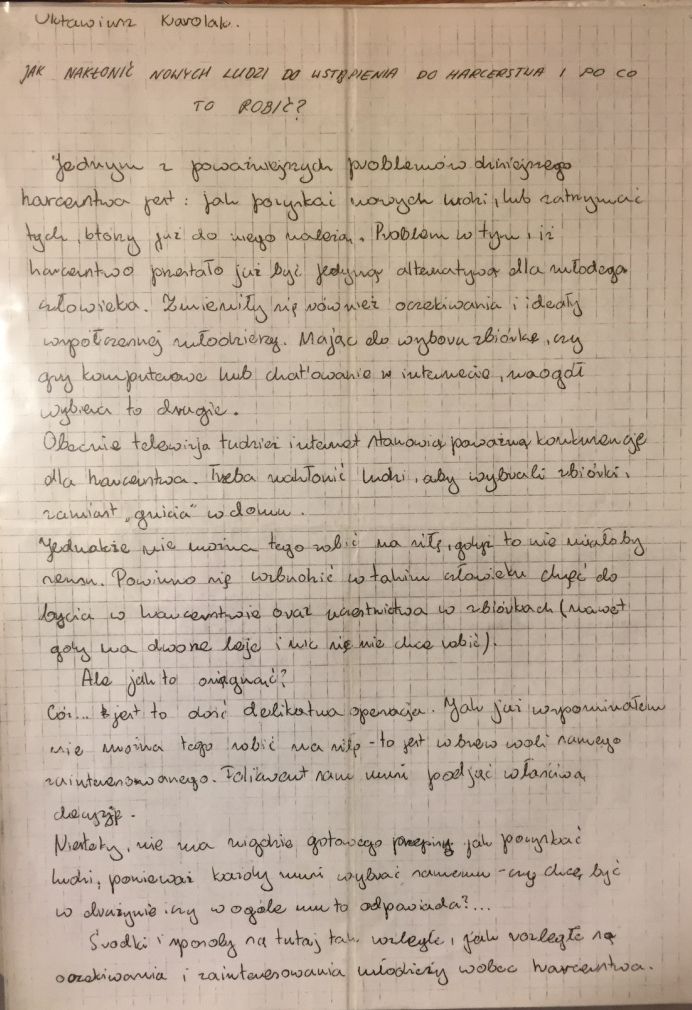 Oktawiusz Karolak.
JAK NAKŁONIĆ NOWYCH LUDZI DO WSTĄPIENIA DO HARCERSTWA I PO CO
TO ROBIĆ?
Jednym z poważniejszych problemów dzisiejszego
harcerstwa jest: jak pozyskać nowych ludzi, lub zatrzymać
tych, którzy już do niego należą. Problem w tym, iż
harcerstwo przestało już być jedyną alternatywą dla młodego
człowieka. Zmieniły się również oczekiwania i ideały
współczesnej młodzieży. Mając do wyboru zbiórkę, czy
gry komputerowe lub chat'owanie w internecie, naogół
wybiera to drugie.
Obecnie telewizja tudzież internet stanowią poważną konkurencję
dla harcerstwa. Trzeba nakłonić ludzi, aby wybrali zbiórki,
zamiast „gnicia" w domu.
Jednakże nie można tego robić na siłę, gdyż to nie miałoby
sensu. Powinno się wzbudzić w takim człowieku chęć do
bycia w harcerstwie oraz uczestnictwa w zbiórkach (nawet
gdy na dworze leje i nic się nie chce robić).
Ale jak to osiągnąć?
Cóż... jest to dość delikatna operacja. Jak już wspominałem
nie można tego robić na siłę - to jest wbrew woli samego
zainteresowanego. Felikwent sam musi podjąć właściwą
decyzję.
Niestety, nie ma nigdzie gotowego przepisu jak pozyskać
ludzi, ponieważ każdy musi wybrać samemu - czy chcę być
w drużynie czy w ogóle mu to odpowiada?...
Środki i sposoby są tutaj tak rozległe, jak rozległe są
oczekiwania i zainteresowania młodzieży wobec harcerstwa.